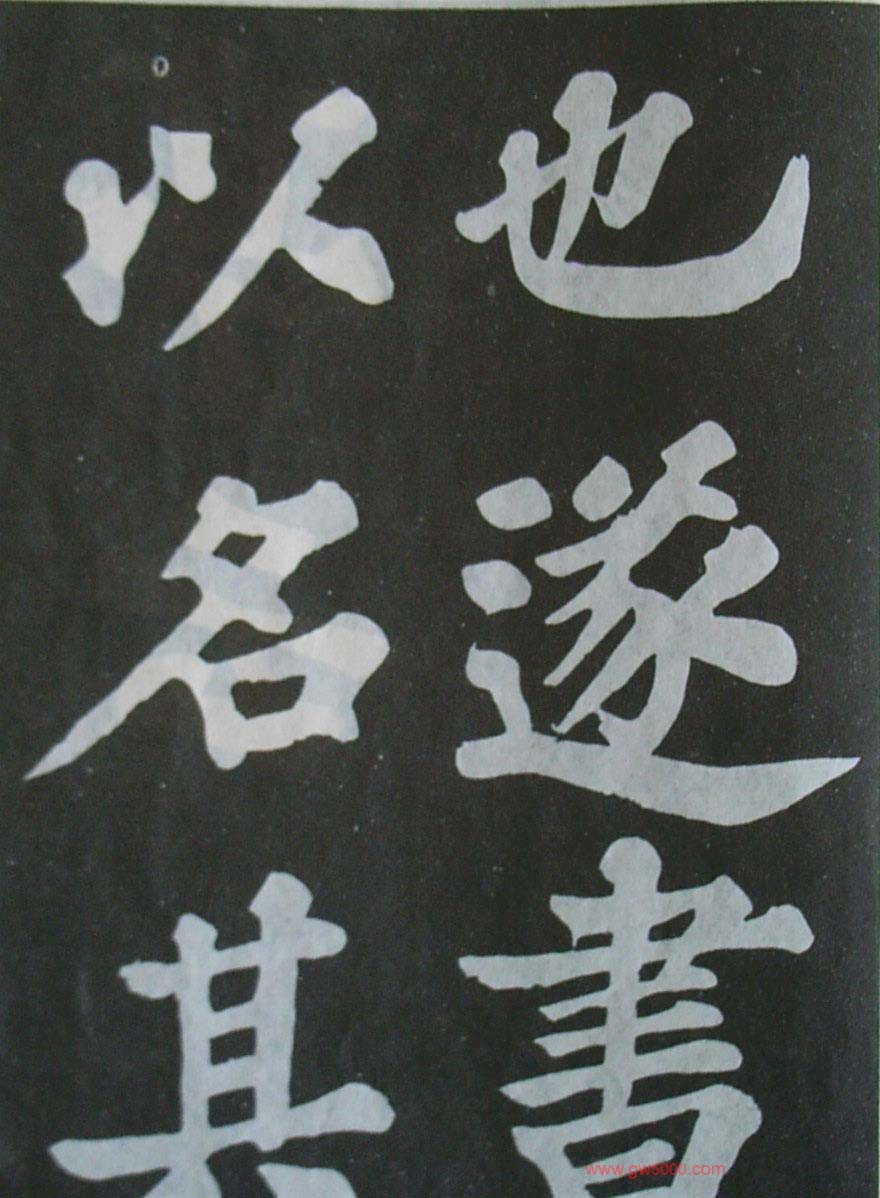 也遂書
以名其
www.gw5000.com